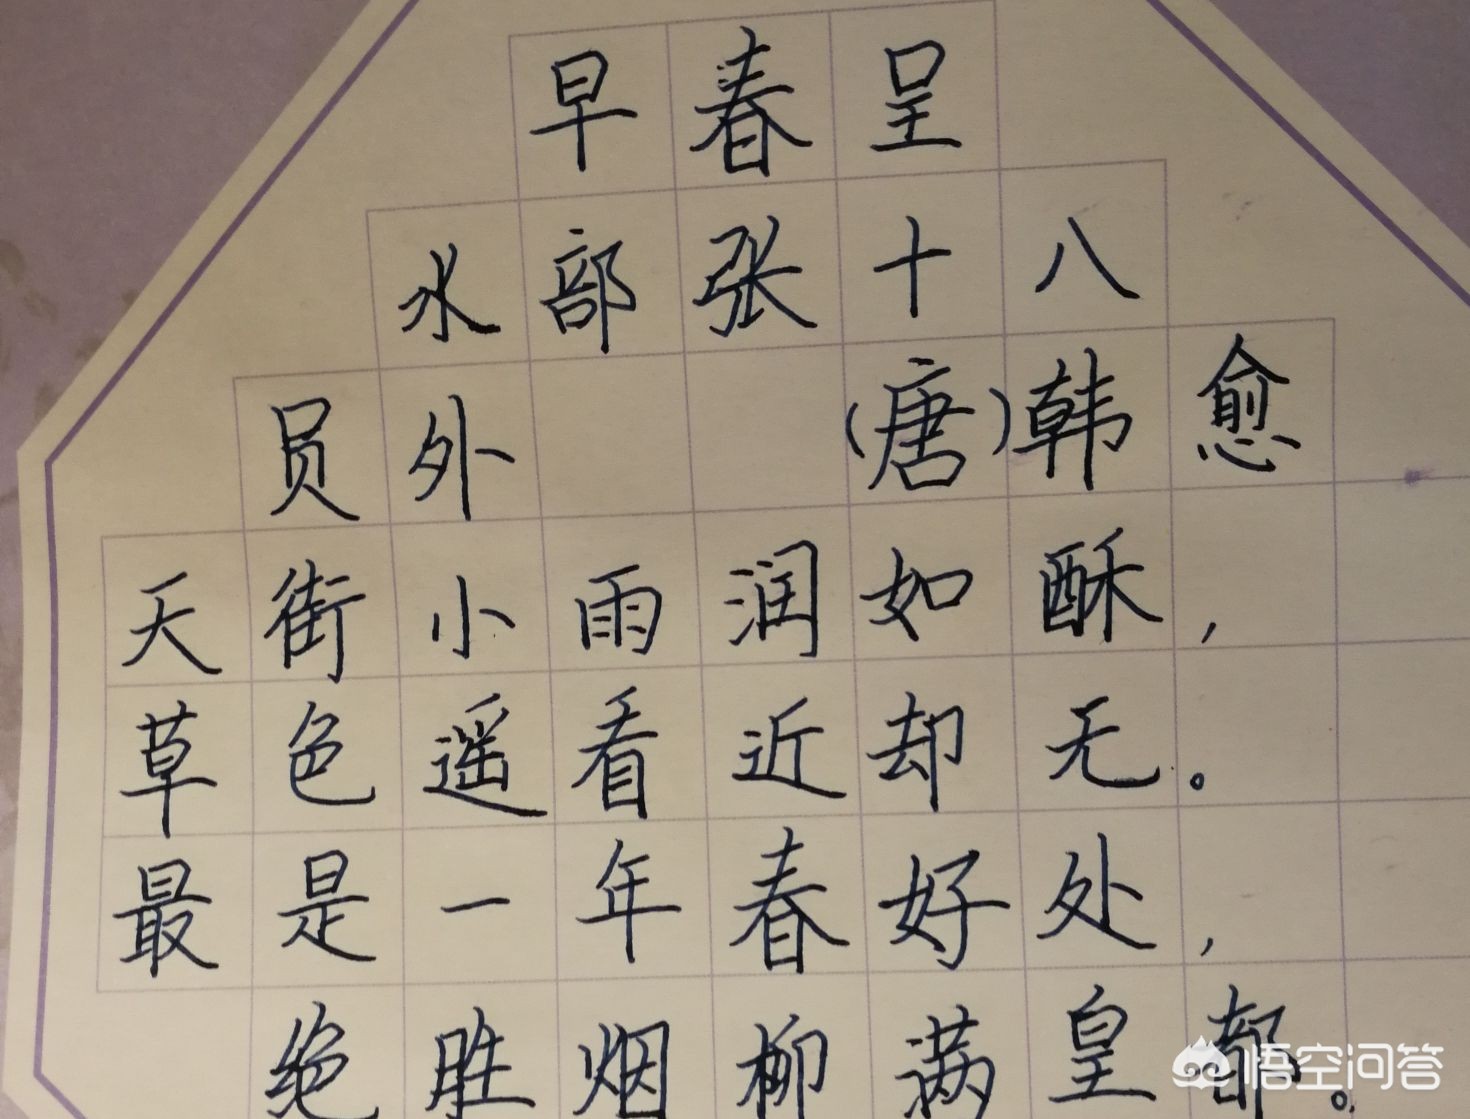 早春呈
水部张十八
员外 (唐)韩愈
天街小雨润如酥，
草色遥看近却无。
最是一年春好处，
绝胜烟柳满皇都。
悟空问答